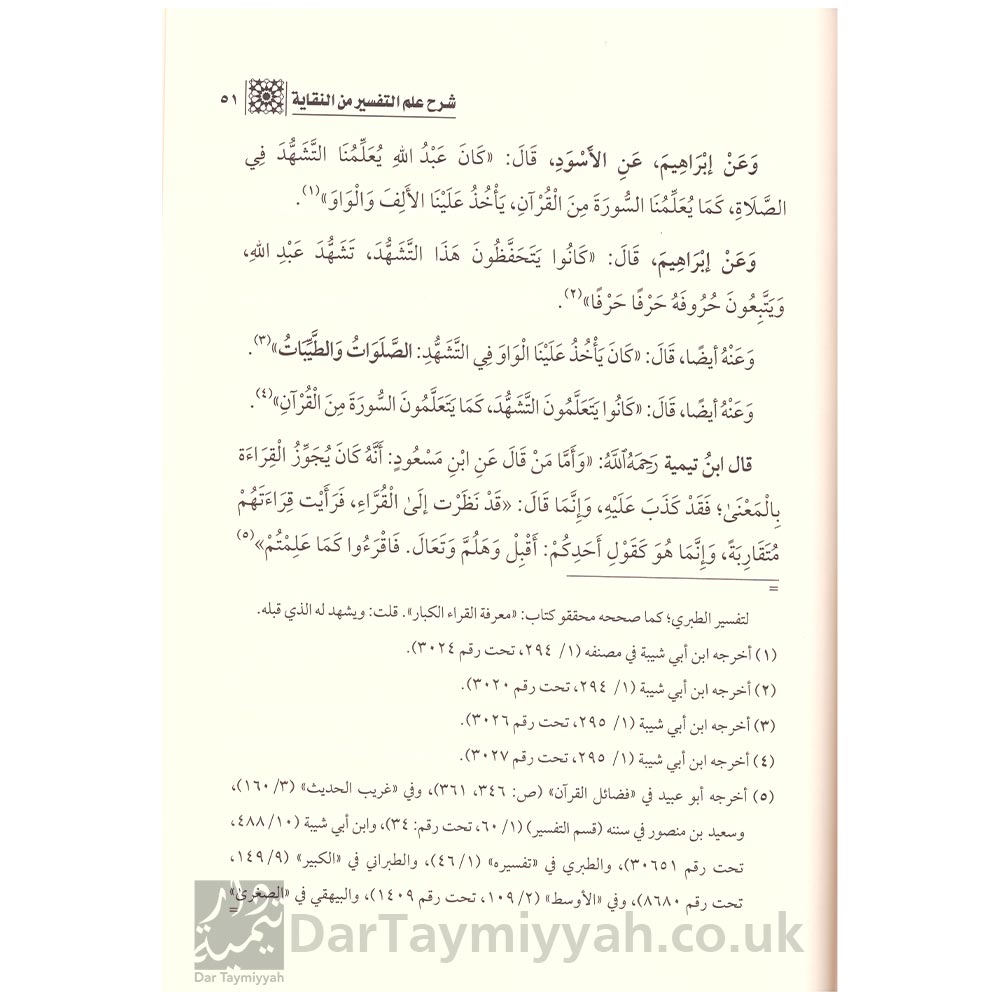 شرح علم التفسير من النقاية ٥١
وَعَنْ إِبْرَاهِيمَ، عَنِ الأَسْوَدِ، قَالَ: «كَانَ عَبْدُ اللهِ يُعَلِّمُنَا التَّشَهُّدَ فِي
الصَّلَاةِ، كَمَا يُعَلِّمُنَا السُّورَةَ مِنَ الْقُرْآنِ، يَأْخُذُ عَلَيْنَا الأَلِفَ وَالْوَاوَ»(١).
وَعَنْ إِبْرَاهِيمَ، قَالَ: «كَانُوا يَتَحَفَّظُونَ هَذَا التَّشَهُّدَ، تَشَهُّدَ عَبْدِ اللهِ،
وَيَتَّبِعُونَ حُرُوفَهُ حَرْفًا حَرْفًا»(٢).
وَعَنْهُ أيضًا، قَالَ: «كَانَ يَأْخُذُ عَلَيْنَا الْوَاوَ فِي التَّشَهُّدِ: الصَّلَوَاتُ وَالطَّيِّبَاتُ»(٣).
وَعَنْهُ أيضًا، قَالَ: «كَانُوا يَتَعَلَّمُونَ التَّشَهُّدَ، كَمَا يَتَعَلَّمُونَ السُّورَةَ مِنَ الْقُرْآنِ»(٤).
قال ابنُ تيمية رَحِمَهُ ٱللَّهُ: «وَأَمَّا مَنْ قَالَ عَنِ ابْنِ مَسْعُودٍ: أَنَّهُ كَانَ يُجَوِّزُ الْقِرَاءَةَ
بِالْمَعْنَىٰ؛ فَقَدْ كَذَبَ عَلَيْهِ، وَإِنَّمَا قَالَ: «قَدْ نَظَرْت إلَىٰ الْقُرَّاءِ، فَرَأَيْت قِرَاءَتَهُمْ
مُتَقَارِبَةً، وَإِنَّمَا هُوَ كَقَوْلِ أَحَدِكُمْ: أَقْبِلْ وَهَلُمَّ وَتَعَالَ. فَاقْرَءُوا كَمَا عَلِمْتُمْ»(٥)
=
لتفسير الطبري؛ كما صححه محققو كتاب: «معرفة القراء الكبار». قلت: ويشهد له الذي قبله.
(١) أخرجه ابن أبي شيبة في مصنفه (١/ ٢٩٤، تحت رقم ٣٠٢٤).
(٢) أخرجه ابن أبي شيبة (١/ ٢٩٤، تحت رقم ٣٠٢٠).
(٣) أخرجه ابن أبي شيبة (١/ ٢٩٥، تحت رقم ٣٠٢٦).
(٤) أخرجه ابن أبي شيبة (١/ ٢٩٥، تحت رقم ٣٠٢٧).
(٥) أخرجه أبو عبيد في «فضائل القرآن» (ص: ٣٤٦، ٣٦١)، وفي «غريب الحديث» (٣/ ١٦٠)،
وسعيد بن منصور في سننه (قسم التفسير) (١/ ٦٠، تحت رقم: ٣٤)، وابن أبي شيبة (١٠/ ٤٨٨،
تحت رقم ٣٠٦٥١)، والطبري في «تفسيره» (١/ ٤٦)، والطبراني في «الكبير» (٩/ ١٤٩،
تحت رقم ٨٦٨٠)، وفي «الأوسط» (٢/ ١٠٩، تحت رقم ١٤٠٩)، والبيهقي في «الصغرىٰ»
=
دار تيمية
Dar Taymiyyah
DarTaymiyyah.co.uk